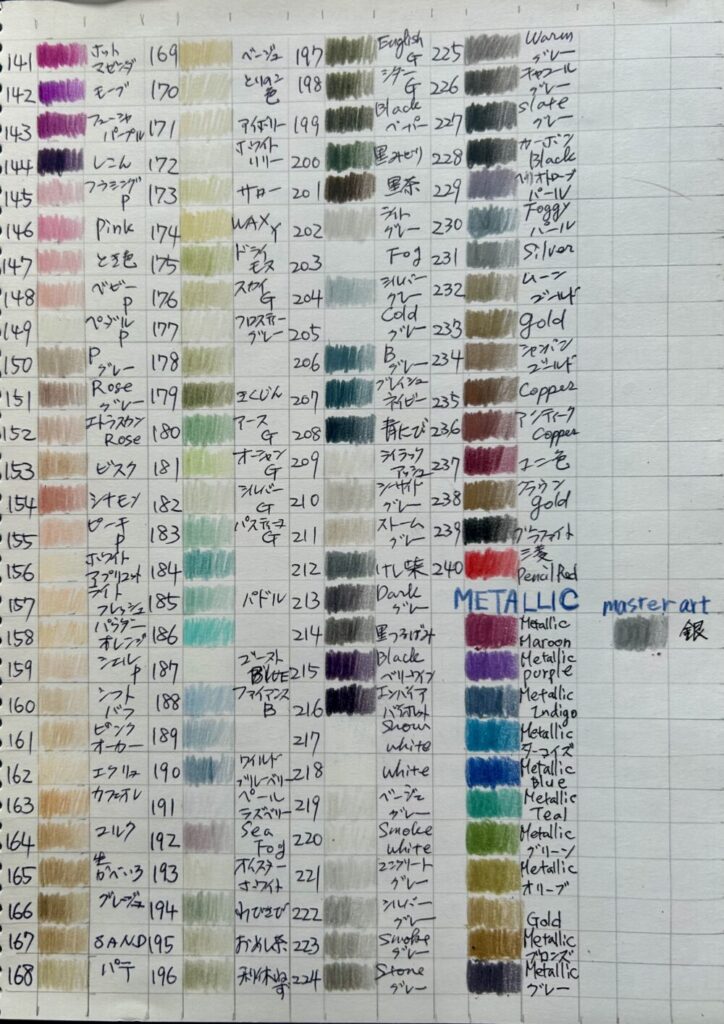 141 ホットマゼンダ
142 モーブ
143 フューシャパープル
144 しこん
145 フラミンゴP
146 Pink
147 とき色
148 ベビーP
149 P
150 Pグレー
151 Roseグレー
152 エトラスカンRose
153 ビスク
154 シナモン
155 ピーチP
156 ホワイトアプリコット
157 ライトフレッシュ
158 パウダーオレンジ
159 シェルP
160 シフトバフ
161 ピンクオーカー
162 エクリュ
163 カフェオレ
164 コルク
165 生かべいろ
166 グレージュ
167 SAND
168 パテ
169 ベージュ
170 とりのこ色
171 アイボリー
172 ホワイトリリー
173 サロー
174 WAX Y
175 ドライモス
176 スカイG
177 フロスティーグレー
178
179 きくじん
180 アースG
181 オーシャンG
182 シルバーG
183 G
184
185 パドル
186
187 ゴーストBLUE
188 ファイアンスB
189
190 ワイルドブルーベリー
191 ペールラズベリー
192 Sea Fog
193 オイスターホワイト
194 わびさび
195 おめし茶
196 利休ねず
197 English G
198 シダーG
199 Blackペーパー
200 黒みどり
201 黒茶
202 ライトグレー
203 Fog
204 シルバーグレー
205 Coldグレー
206 B
207 グレイシュネイビー
208 青にび
209 ライラックアッシュ
210 シーサイドグレー
211 ストームグレー
212 けし紫
213 Darkグレー
214 黒つるばみ
215 Blackベリーワイン
216 エンパイアバイオレット
217 Snow white
218 white
219 ベージュグレー
220 Smoke white
221 コンクリートグレー
222 シルバーグレー
223 Smokeグレー
224 Stoneグレー
225 Warmグレー
226 チャコールグレー
227 Slateグレー
228 カーボンBlack
229 ヘリオトロープパール
230 Foggyパール
231 Silver
232 ムーンゴールド
233 gold
234 シャンパンゴールド
235 Copper
236 アンティークCopper
237 ユニ色
238 ブラウンgold
239 グラファイト
240 三菱Pencil Red
METALLIC
Metallic Maroon
Metallic purple
Metallic Indigo
Metallic ターコイズ
Metallic Blue
Metallic Teal
Metallic グリーン
Metallic オリーブ
Gold
Metallic ブロンズ
Metallic グレー
master art
銀